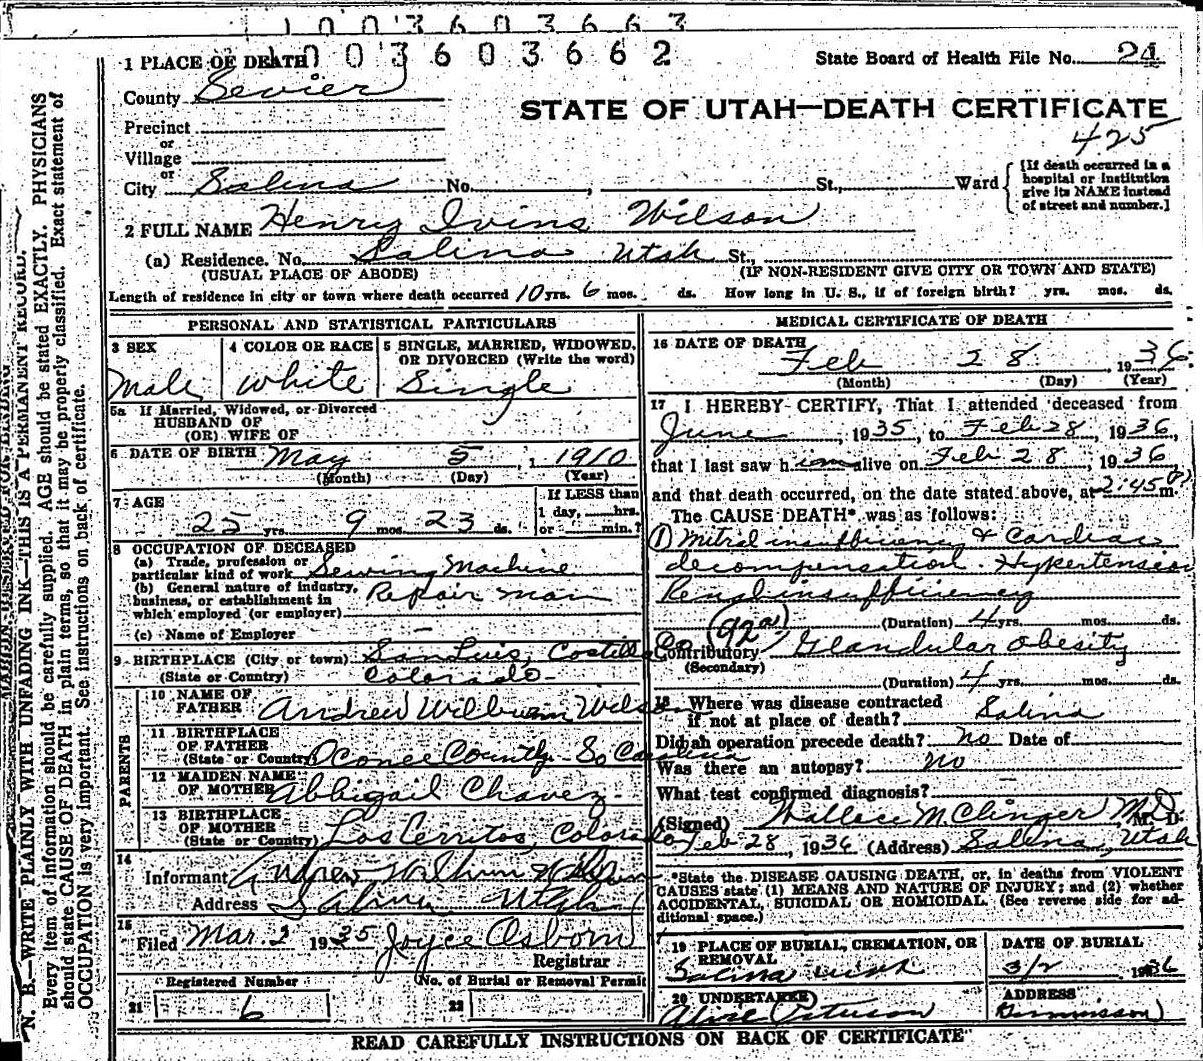 1003603663
1003603662
1 PLACE OF DEATH
State Board of Health File No. 24
County Sevier
STATE OF UTAH—DEATH CERTIFICATE
Precinct
425
or
Village
or
City Salina No. , St., Ward
[If death occurred in a
hospital or institution
give its NAME instead
of street and number.]
2 FULL NAME Henry Ivins Wilson
(a) Residence. No. Salina Utah St.,
(USUAL PLACE OF ABODE) (IF NON-RESIDENT GIVE CITY OR TOWN AND STATE)
Length of residence in city or town where death occurred 10 yrs. 6 mos. ds. How long in U. S., if of foreign birth? yrs. mos. ds.
PERSONAL AND STATISTICAL PARTICULARS
3 SEX
Male
4 COLOR OR RACE
White
5 SINGLE, MARRIED, WIDOWED,
OR DIVORCED (Write the word)
Single
5a If Married, Widowed, or Divorced
HUSBAND OF
(OR) WIFE OF
6 DATE OF BIRTH May 5, 1910
(Month) (Day) (Year)
7 AGE
25 yrs. 9 mos. 23 ds.
If LESS than
1 day, hrs.
or min.?
8 OCCUPATION OF DECEASED
(a) Trade, profession or
particular kind of work Sewing Machine
(b) General nature of industry, Repair man
business, or establishment in
which employed (or employer)
(c) Name of Employer
9 BIRTHPLACE (City or town) San Luis, Costilla Co
(State or Country) Colorado
PARENTS
10 NAME OF
FATHER Andrew Wilburn Wilson
11 BIRTHPLACE
OF FATHER
(State or Country) Oconee County So Carolina
12 MAIDEN NAME
OF MOTHER Abbigail Chavez
13 BIRTHPLACE
OF MOTHER
(State or Country) Los Cerritos, Colorado
14
Informant Andrew Wilburn Wilson
Address Salina Utah
15
Filed Mar. 2 1935 Joyce Osborn
Registrar
Registered Number
21 6
No. of Burial or Removal Permit
22
MEDICAL CERTIFICATE OF DEATH
16 DATE OF DEATH
Feb 28, 1936
(Month) (Day) (Year)
17 I HEREBY CERTIFY, That I attended deceased from
June, 1935, to Feb 28, 1936,
that I last saw him alive on Feb 28, 1936
and that death occurred, on the date stated above, at 2:45 P m.
The CAUSE DEATH* was as follows:
(1) Mitral insufficiency & Cardiac
decompensation. Hypertension
Renal insufficiency
(92a) (Duration) 4 yrs. mos. ds.
Contributory Glandular obesity
(Secondary)
(Duration) 4 yrs. mos. ds.
18 Where was disease contracted
if not at place of death? Salina
Did an operation precede death? No Date of
Was there an autopsy? No
What test confirmed diagnosis?
(Signed) Wallace M Clinger M.D. M. D.
Feb 28, 1936 (Address) Salina, Utah
*State the DISEASE CAUSING DEATH, or, in deaths from VIOLENT
CAUSES state (1) MEANS AND NATURE OF INJURY; and (2) whether
ACCIDENTAL, SUICIDAL OR HOMICIDAL. (See reverse side for ad-
ditional space.)
19 PLACE OF BURIAL, CREMATION, OR
REMOVAL
Salina Utah
DATE OF BURIAL
3/2 1936
20 UNDERTAKER
ADDRESS
READ CAREFULLY INSTRUCTIONS ON BACK OF CERTIFICATE
N. B.—WRITE PLAINLY WITH UNFADING INK—THIS IS A PERMANENT RECORD.
Every item of information should be carefully supplied. AGE should be stated EXACTLY. PHYSICIANS
should state CAUSE OF DEATH in plain terms, so that it may be properly classified. Exact statement of
OCCUPATION is very important. See instructions on back of certificate.